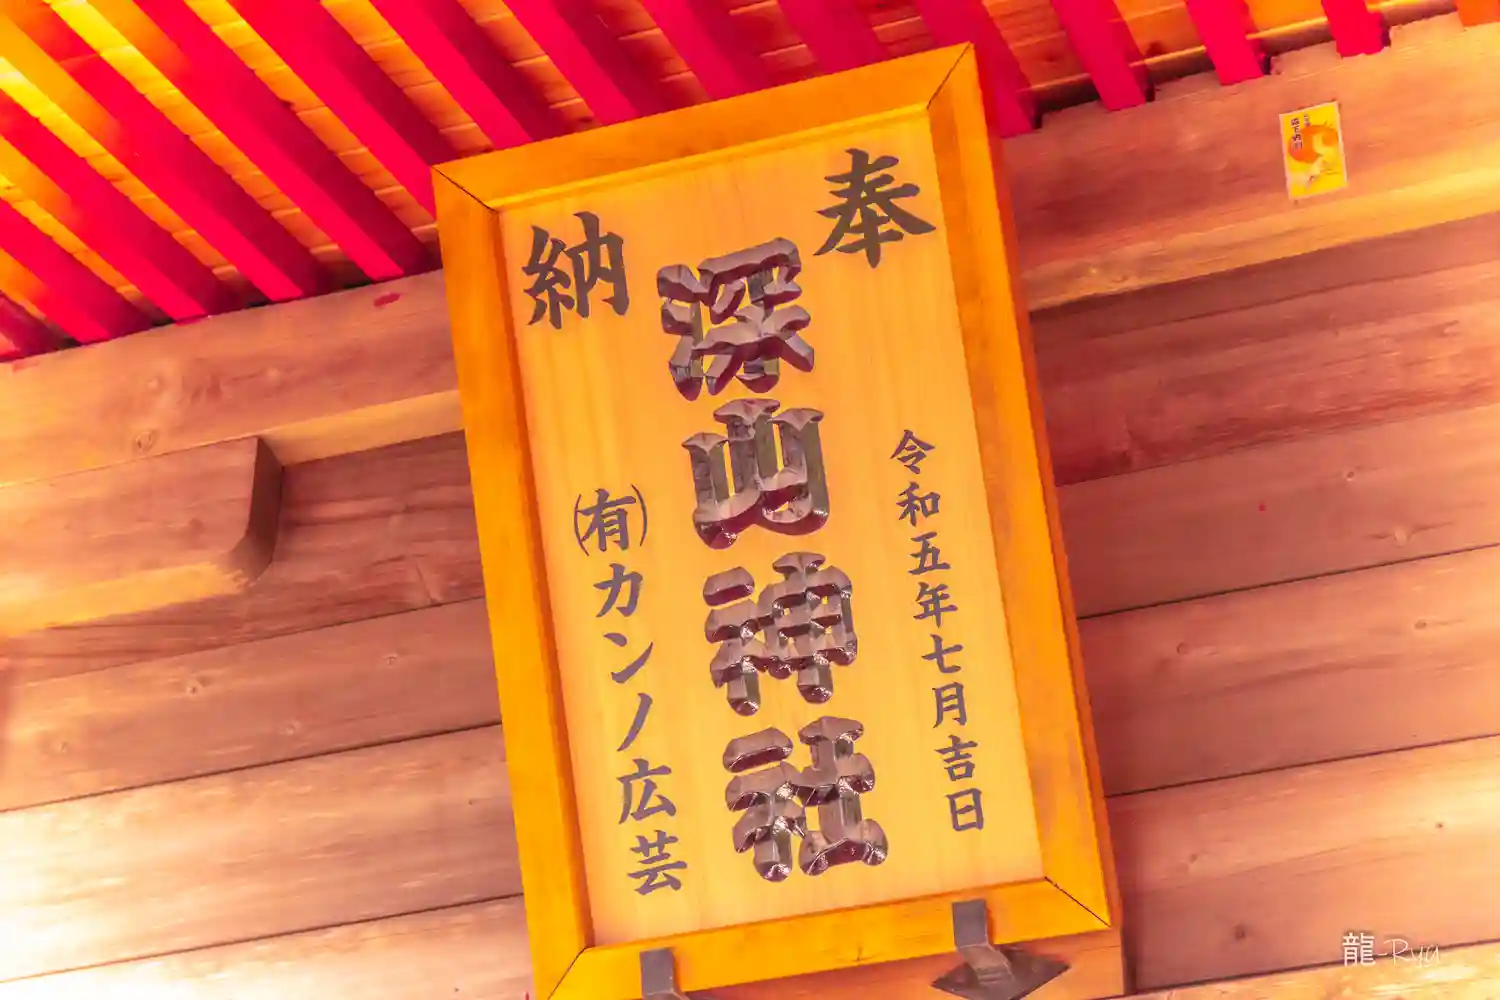 奉納
令和五年七月吉日
深山神社
(有)カンノ広芸
龍-Ryu